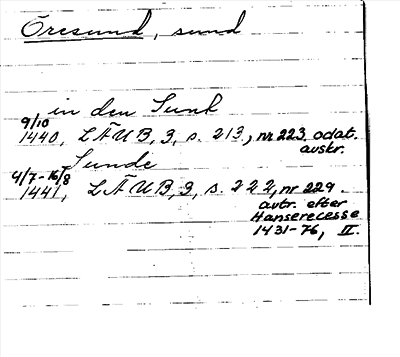 Öresund, sund
in den Sunt
9/10
1440, LÄUB, 3, s. 213, nr 223 odat.
avskr.
Sunde
4/7-16/8
1441, LÄUB, 3, s. 222, nr 229.
avtr. efter
Hanserecesse
1431-76, II.